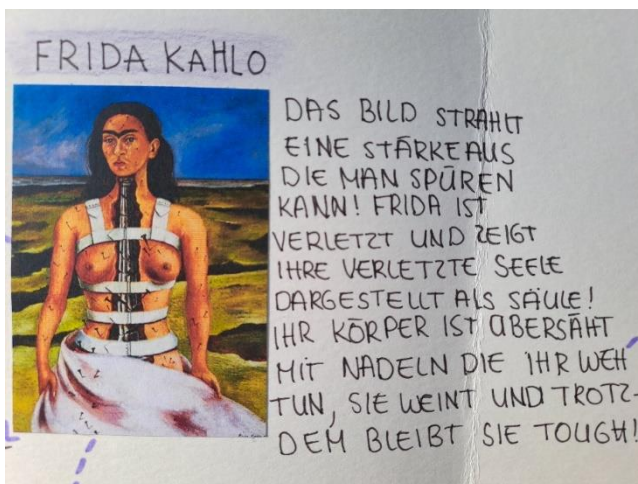 FRIDA KAHLO
DAS BILD STRAHLT
EINE STÄRKE AUS
DIE MAN SPÜREN
KANN! FRIDA IST
VERLETZT UND ZEIGT
IHRE VERLETZTE SEELE
DARGESTELLT ALS SÄULE!
IHR KÖRPER IST ÜBERSÄHT
MIT NADELN DIE IHR WEH
TUN, SIE WEINT UND TROTZ-
DEM BLEIBT SIE TOUGH!